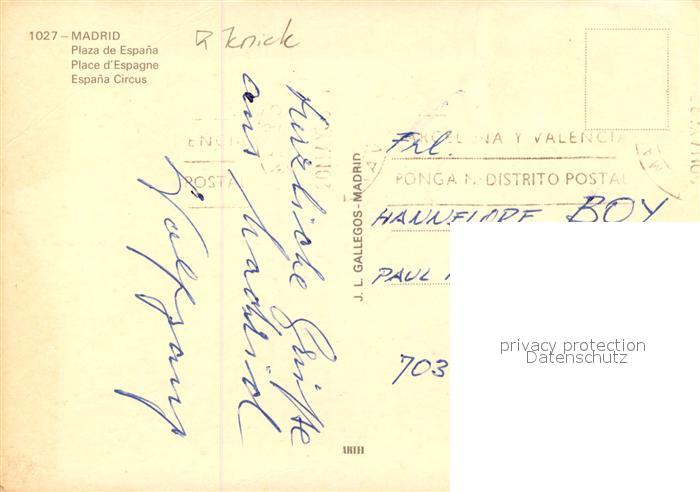 1027 – MADRID
Plaza de España
Place d'Espagne
España Circus
Knick
Herzliche Grüße
aus Madrid
Wolfgang
J. L. GALLEGOS - MADRID
BARCELONA Y VALENCIA
PONGA N. DISTRITO POSTAL
ENCI
POSTA
Frl.
HANNELORE BOY
PAUL
703
privacy protection
Datenschutz